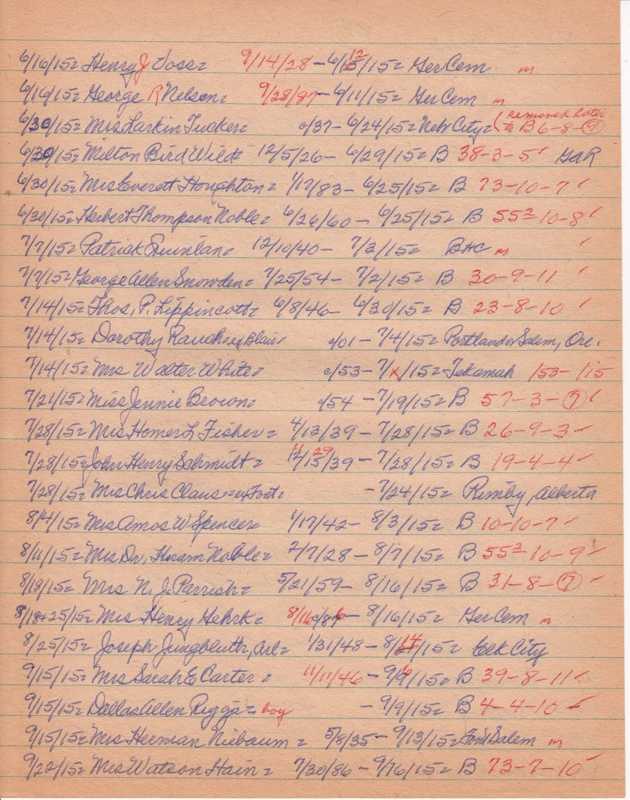 6/16/15= Henry J Voss= 9/14/28 - 6/12/15= Ger Cem m
6/16/15= George R Nelson= 9/28/97 - 6/11/15= Ger Cem m
6/30/15= Mrs Larkin Tucker= c/37 - 6/24/15= Nebr City= (removed later to B 6-8-7)
6/30/15= Milton Bird Wilde 12/5/26 - 6/29/15= B 38-3-5 ✓ GAR
6/30/15= Mrs Everett Houghton= 1/17/83 - 6/25/15= B 73-10-7 ✓
6/30/15= Herbert Thompson Noble= 6/26/60 - 6/25/15= B 55½-10-8 ✓
7/7/15= Patrick Quinlan= 12/10/40 - 7/3/15= B+C m ✓
7/7/15= George Allen Snowden= 7/25/54 - 7/2/15= B 30-9-11 ✓
7/14/15= Thos. P. Lippincott= 6/8/46 - 6/30/15= B 23-8-10 ✓
7/14/15= Dorothy Rauch=ex Blair c/01 - 7/4/15= Portland or Salem, Ore.
7/14/15= Mrs Walter White= c/53 - 7/x/15= Tekamah /53 - /15
7/21/15= Miss Jennie Brown= c/54 - 7/19/15= B 57-3-7 ✓
7/28/15= Mrs Homer L Fisher= 4/13/39 - 7/28/15= B 26-9-3 ✓
7/28/15= John Henry Schmidt= 11/29/39 - 7/28/15= B 19-4-4 ✓
7/28/15= Mrs Chris Claus=ex Font= - 7/24/15= Rimby, Alberta
8/4/15= Mrs Amos W Spencer= 1/17/42 - 8/3/15= B 10-10-7 ✓
8/11/15= Mrs Dr. Hiram Noble= 2/7/28 - 8/7/15= B 55½-10-9 ✓
8/18/15= Mrs N. J. Parrish= 5/21/59 - 8/16/15= B 31-8-7 ✓
8/18+25/15= Mrs Henry Gehrk= 8/16/ - 8/16/15= Ger Cem m
8/25/15= Joseph Jungbluth, = 1/31/48 - 8/14/15= Elk City
9/15/15= Mrs Sarah E Carter= 11/11/46 - 9/9/15= B 39-8-11 ✓
9/15/15= Dallas Allen Riggs= boy - 9/9/15= B 4-4-10 ✓
9/15/15= Mrs Herman Niebaum= 5/8/35 - 9/13/15= Font Salem m
9/22/15= Mrs Watson Hain= 7/30/86 - 9/16/15= B 73-7-10 ✓